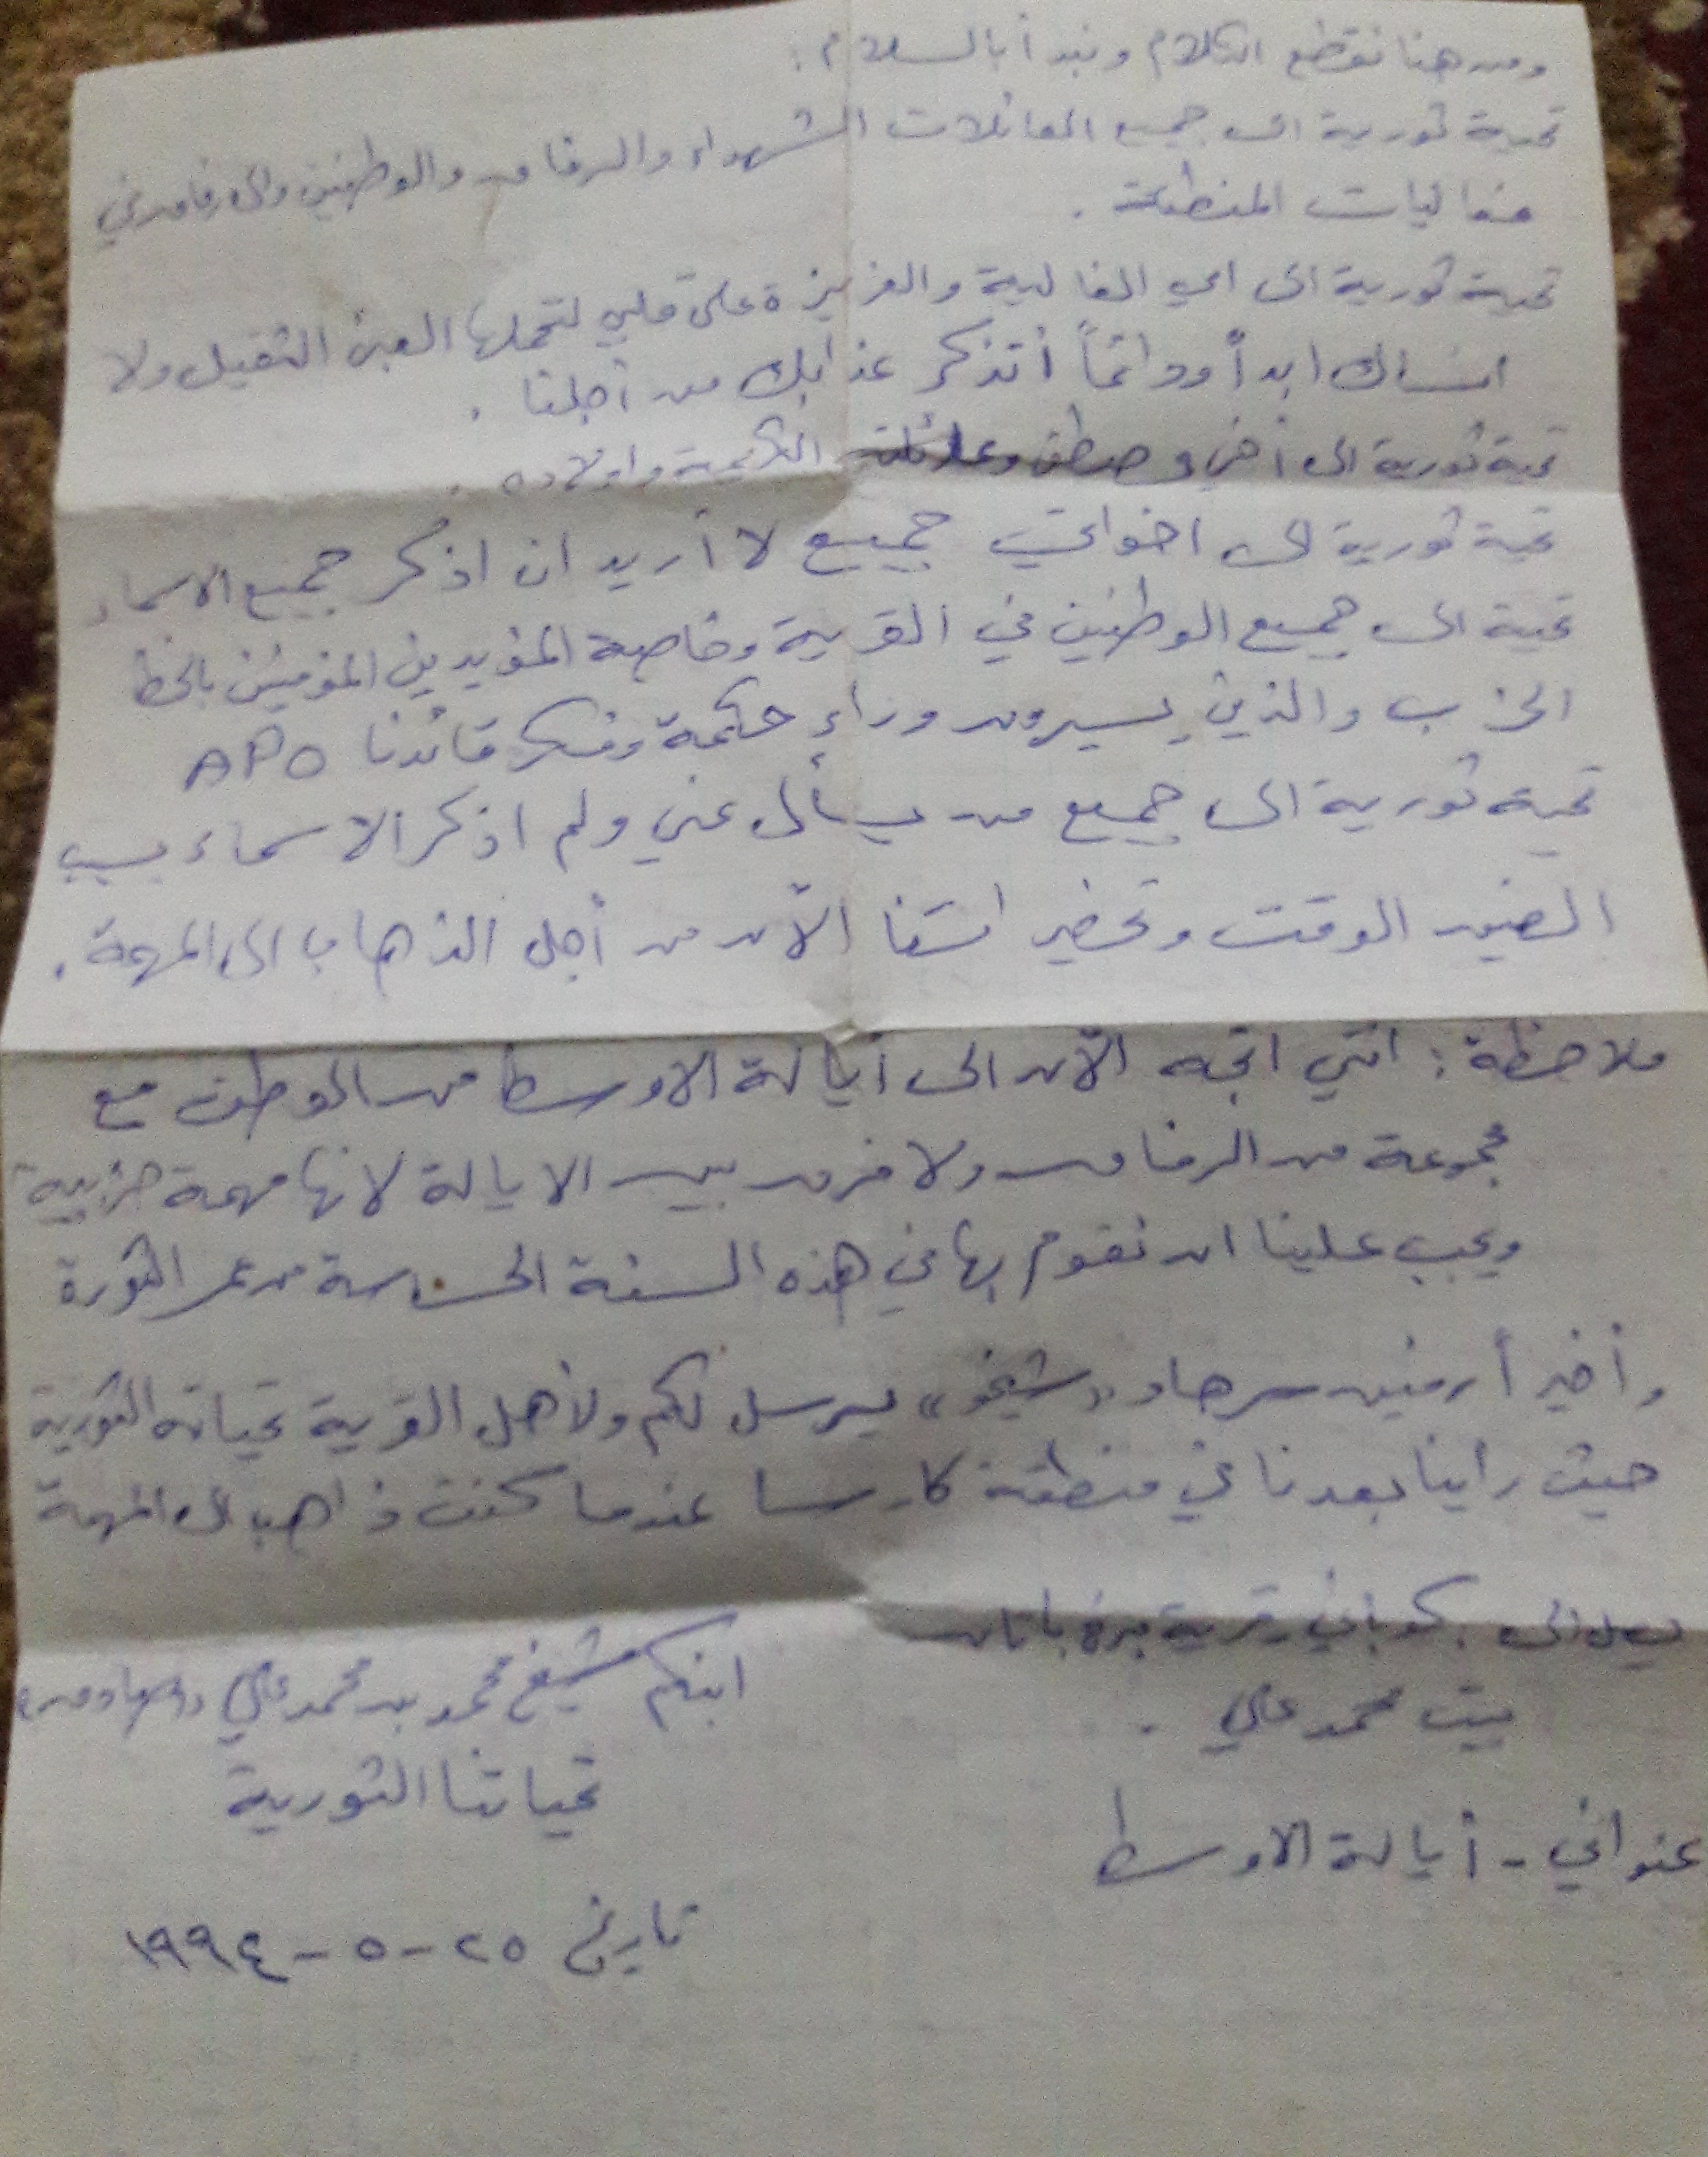 ومن هنا نقطع الكلام ونبدأ بالسلام :
تحية ثورية الى جميع العائلات الشهداء والرفاق والوطنين والى رفاق في
فعاليات المنطقة .
تحية ثورية الى امي الغالية والعزيزة على قلبي لتحملها العبئ الثقيل ولا
انساك ابداً ودائماً أتذكر عذابك من أجلنا .
تحية ثورية الى أخي وعائلته الكريمة واولاده .
تحية ثورية الى اخواتي جميع لا أريد ان اذكر جميع الاسماء
تحية الى جميع الوطنين في القرية وخاصة المؤيدين المؤمنين بالخط
الحزب والذين يسيرون وراء حكمة وفكر قائدنا APO
تحية ثورية الى جميع من يسأل عني ولم اذكر الاسماء بسبب
الضيق الوقت وتحضير انفسنا الآن من أجل الذهاب الى المهمة .
ملاحظة : انني اتجه الآن الى أيالة الاوسط من الوطن مع
مجموعة من الرفاق ولا فرق بين الايالة لانها مهمة حزبية
ويجب علينا ان نقوم بها في هذه السنة الحساسة من عمر الثورة
وأخيراً رفيق سرحد « شيخو » يرسل لكم ولأهل القرية تحياته الثورية
حيث راينا بعدنا في منطقة كارسا عندما كنت ذاهب الى المهمة
يصل الى كوباني قرية
بيت محمد علي .
ابنكم شيخ محمد بن محمد علي
تحياتنا الثورية
عنواني - أيالة الاوسط
تاريخ ٢٥ - ٥ - ١٩٩٤